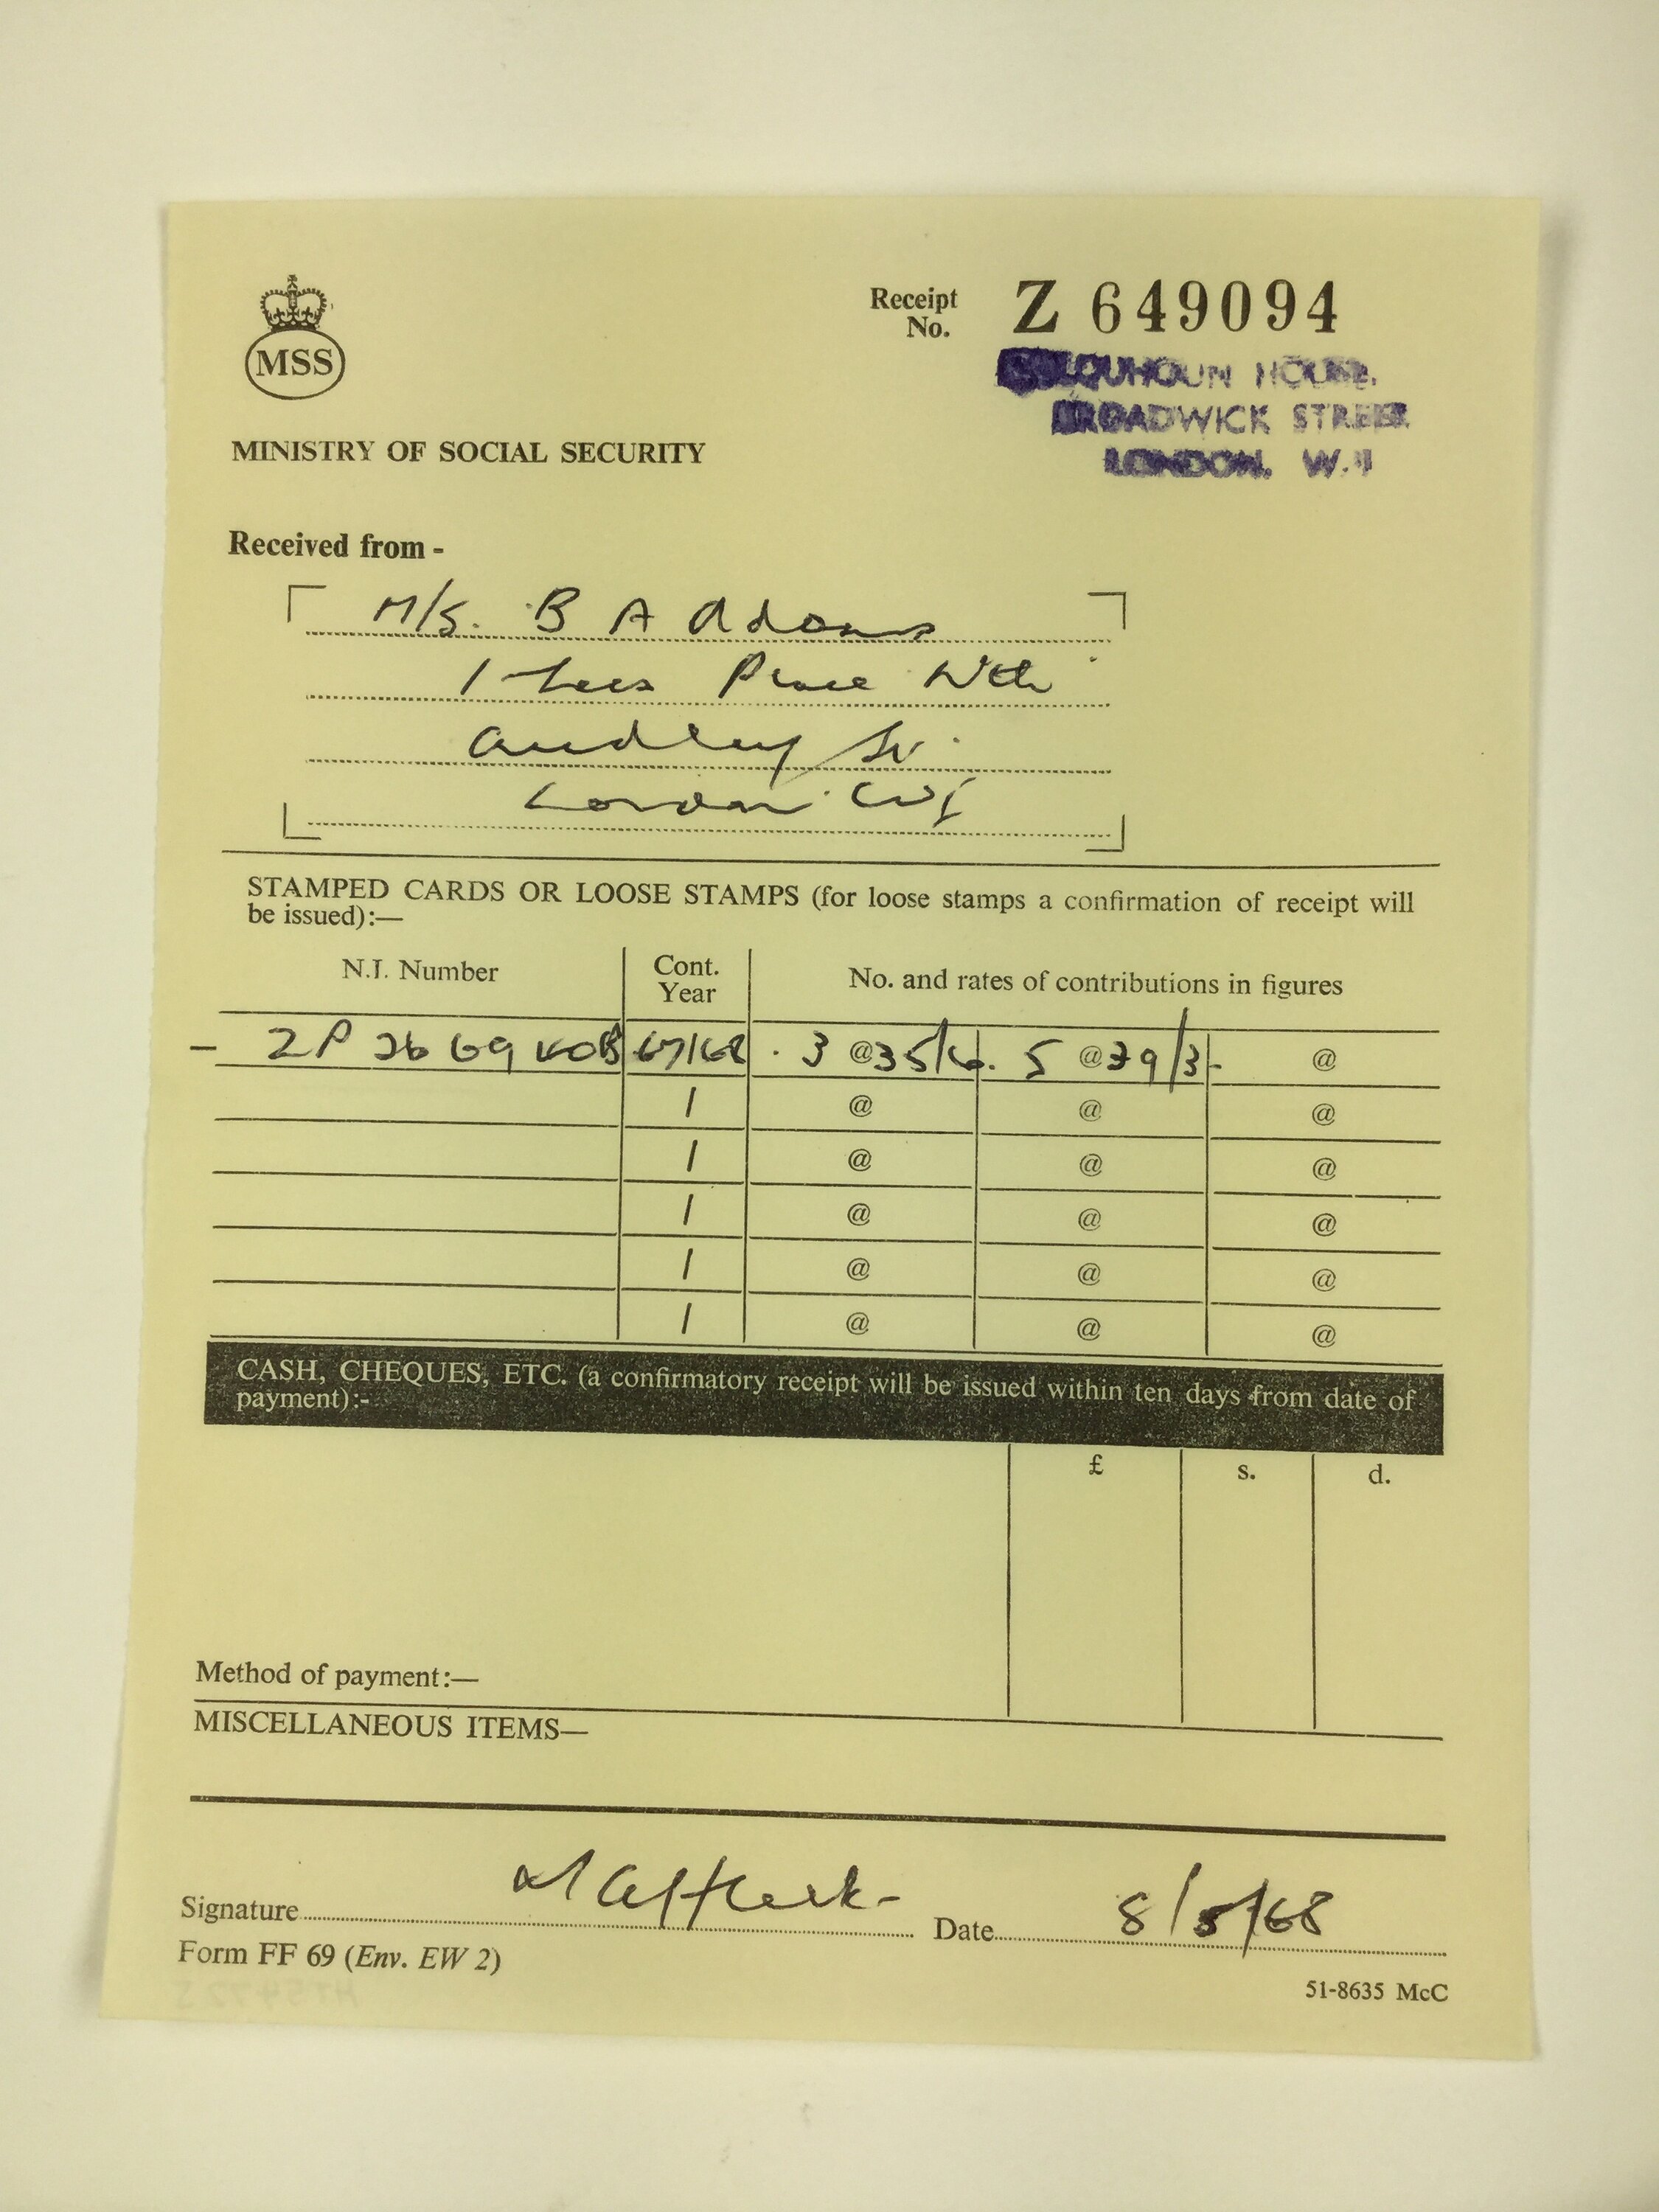 MSS
MINISTRY OF SOCIAL SECURITY
Receipt No. Z 649094
HOUSE,
BROADWICK STREET
LONDON. W.1
Received from -
M/S. B A Adams
1 Lees Place Nth
Audley St.
London W1
STAMPED CARDS OR LOOSE STAMPS (for loose stamps a confirmation of receipt will
be issued):—
N.I. Number Cont. Year No. and rates of contributions in figures
- ZP 26 69 40B 67/68 . 3 @ 35/6. 5 @ 39/3 - @
/ @ @ @
/ @ @ @
/ @ @ @
/ @ @ @
/ @ @ @
CASH, CHEQUES, ETC. (a confirmatory receipt will be issued within ten days from date of
payment):-
£ s. d.
Method of payment:—
MISCELLANEOUS ITEMS—
Signature Date 8/5/68
Form FF 69 (Env. EW 2)
51-8635 McC